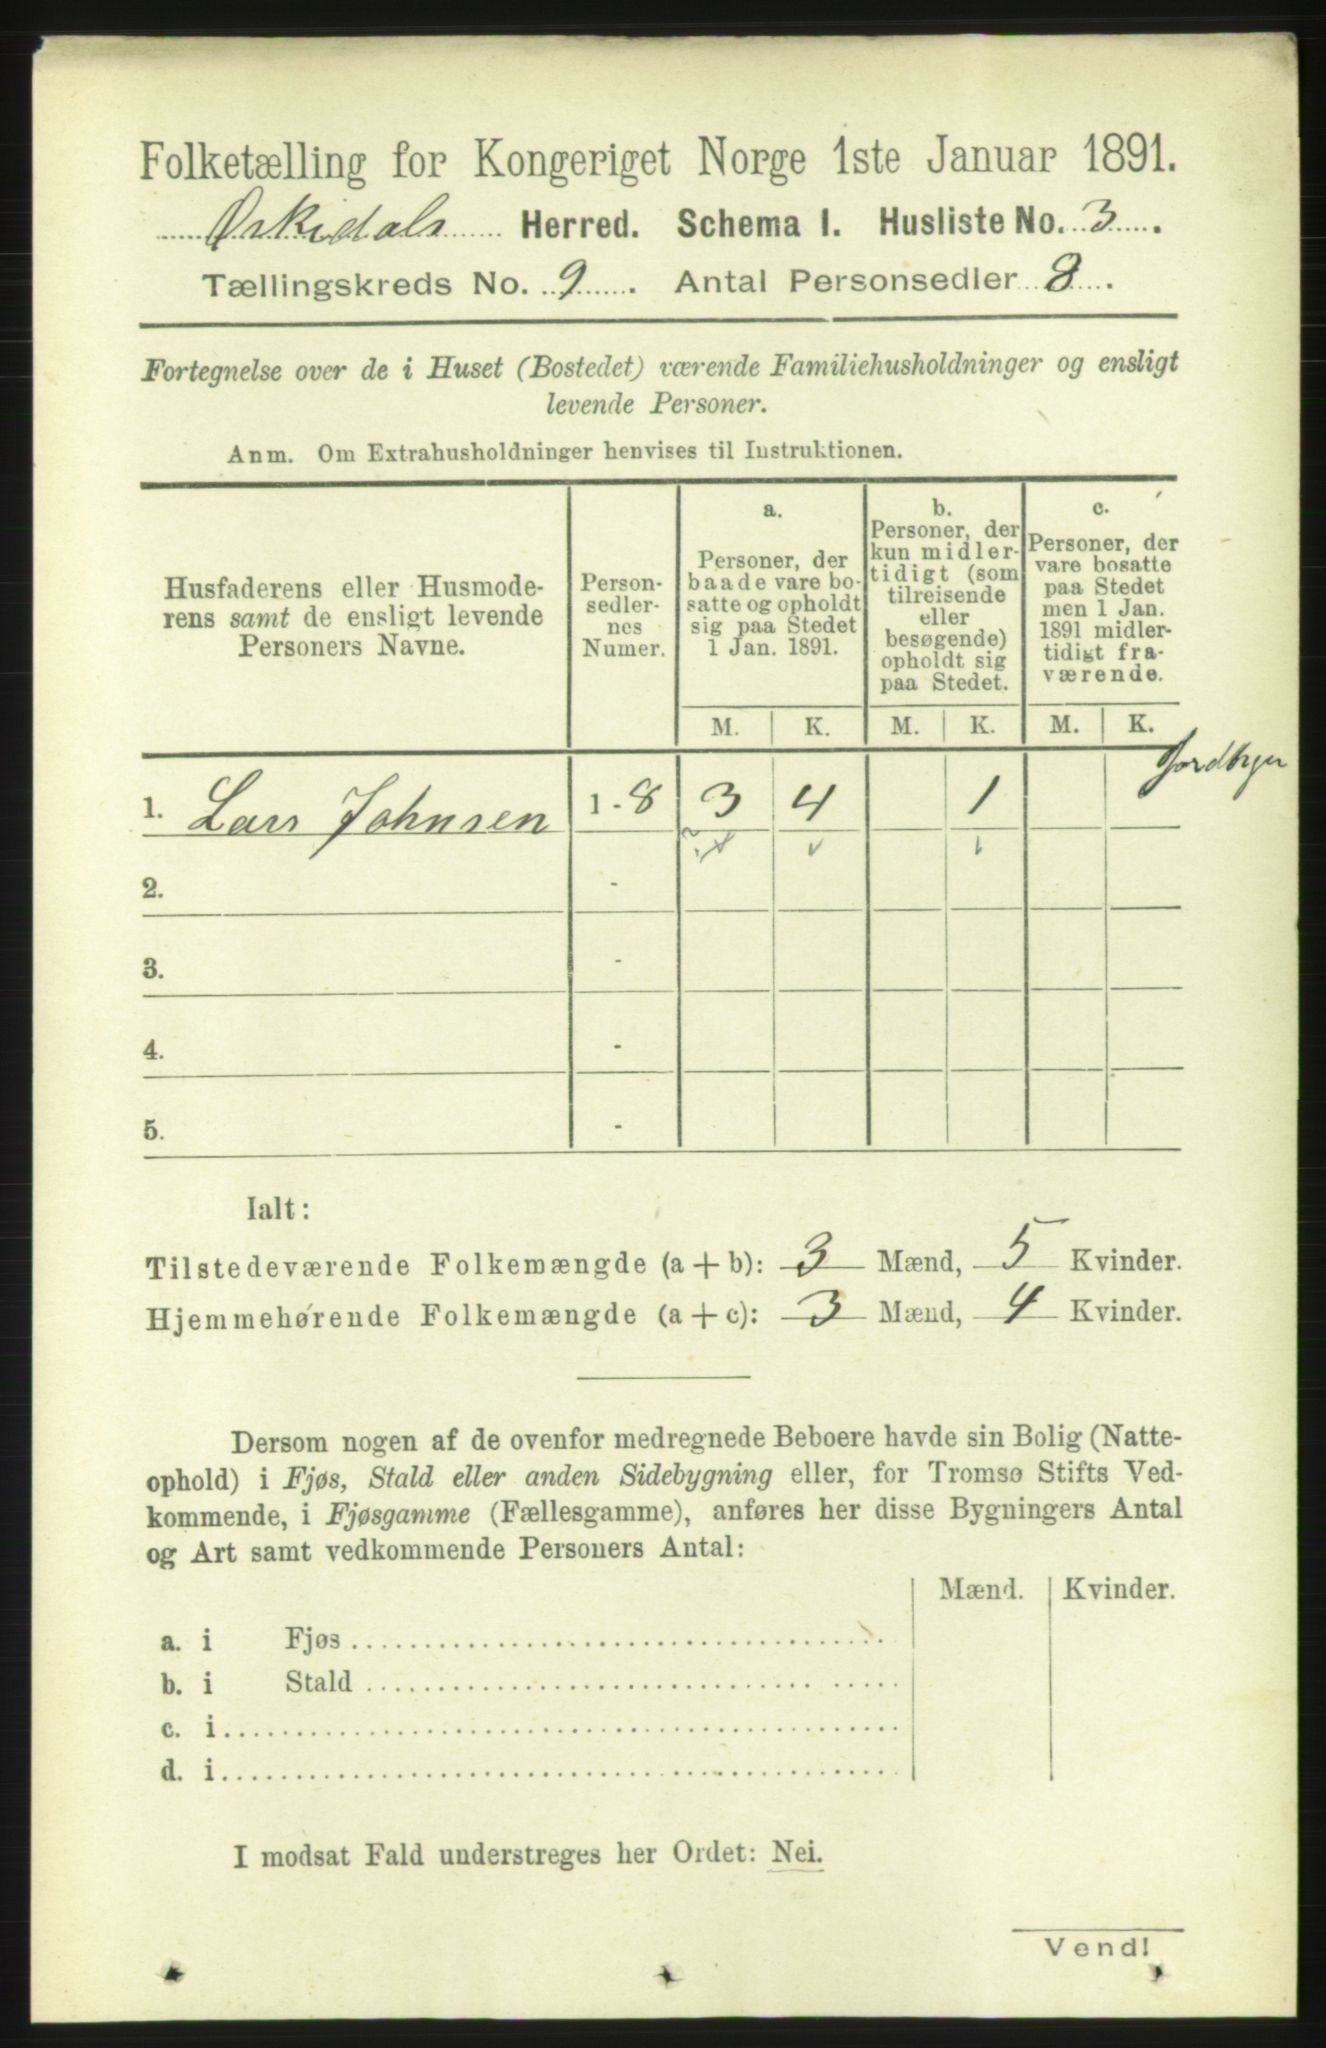 Folketælling for Kongeriget Norge 1ste Januar 1891.
Ørkedals Herred. Schema I. Husliste No. 3.
Tællingskreds No. 9. Antal Personsedler 8.
Fortegnelse over de i Huset (Bostedet) værende Familiehusholdninger og ensligt
levende Personer.
Anm. Om Extrahusholdninger henvises til Instruktionen.
Husfaderens eller Husmode-
rens samt de ensligt levende
Personers Navne.
Person-
sedler-
nes
Numer.
a.
Personer, der
baade vare bo-
satte og opholdt
sig paa Stedet
1 Jan. 1891.
b.
Personer, der
kun midler-
tidigt (som
tilreisende
eller
besøgende)
opholdt sig
paa Stedet.
c.
Personer, der
vare bosatte
paa Stedet
men 1 Jan.
1891 midler-
tidigt fra-
værende.
M. K. M. K. M. K.
1. Lars Johnsen 1-8 3 4 1
2. -
3. -
4. -
5. -
Ialt:
Tilstedeværende Folkemængde (a+b): 3 Mænd, 5 Kvinder.
Hjemmehørende Folkemængde (a+c): 3 Mænd, 4 Kvinder.
Dersom nogen af de ovenfor medregnede Beboere havde sin Bolig (Natte-
ophold) i Fjøs, Stald eller anden Sidebygning eller, for Tromsø Stifts Ved-
kommende, i Fjøsgamme (Fællesgamme), anføres her disse Bygningers Antal
og Art samt vedkommende Personers Antal:
Mænd. Kvinder.
a. i Fjøs
b. i Stald
c. i
d. i
I modsat Fald understreges her Ordet: Nei.
Vend!